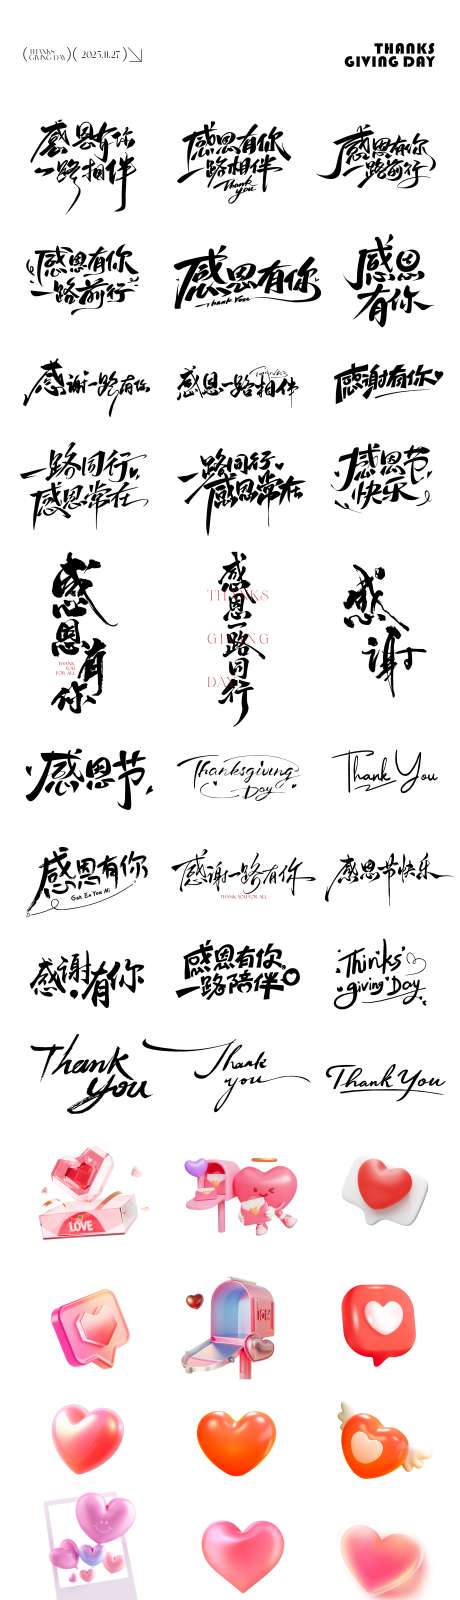 THANKS
GIVING DAY
2025.11.27
THANKS
GIVING DAY
感恩有你
一路相伴
感恩有你
一路相伴
Thank
you
感恩有你
一路前行
感恩有你
一路前行
感恩有你
Thank You
感恩
有你
感谢一路有你
感恩一路相伴
感谢有你
一路同行
感恩常在
一路同行
感恩常在
感恩节
快乐
感恩有你
THANK
YOU
FOR ALL
感恩一路同行
THANKS
GIVING
DAY
感谢
感恩节
Thanksgiving
Day
Thank You
感恩有你
Gan En You Ni
感谢一路有你
THANK YOU FOR ALL
感恩节快乐
感谢有你
感恩有你
一路陪伴
Thinks
giving Day
Thank
you
Thank
you
Thank You
LOVE